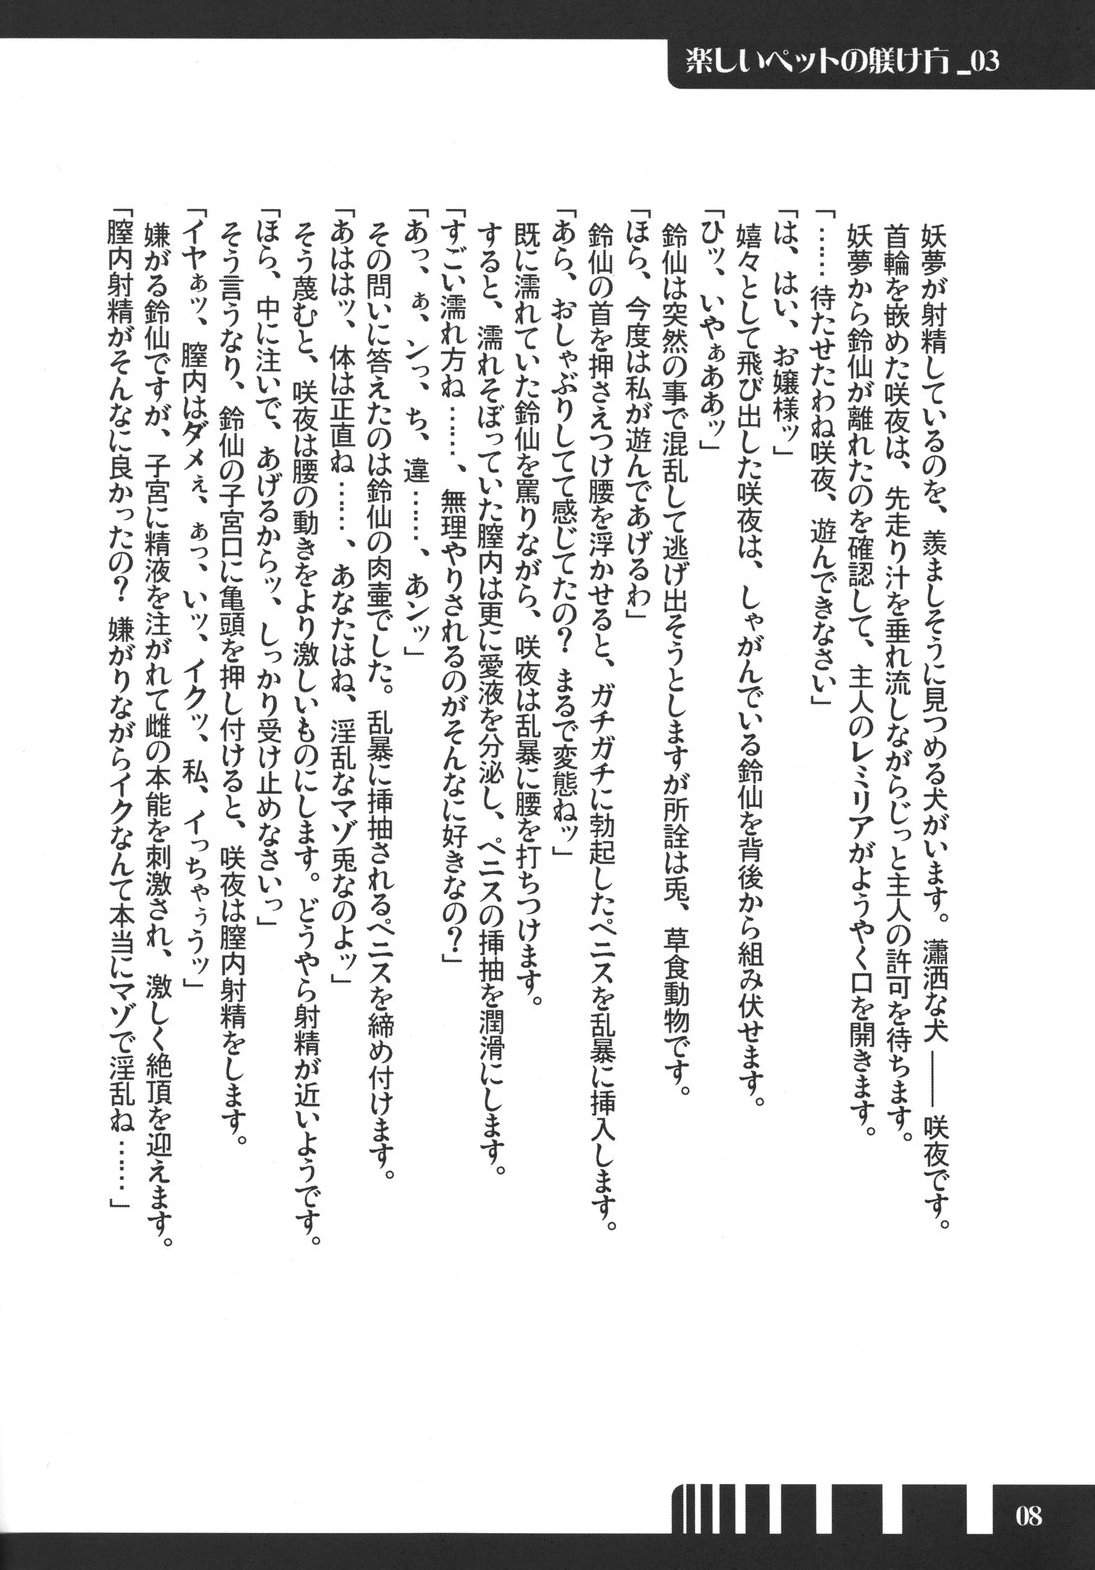 楽しいペットの躾け方_03
妖夢が射精しているのを、羨ましそうに見つめる犬がいます。瀟洒な犬 ―― 咲夜です。
首輪を嵌めた咲夜は、先走り汁を垂れ流しながらじっと主人の許可を待ちます。
妖夢から鈴仙が離れたのを確認して、主人のレミリアがようやく口を開きます。
「……待たせたわね咲夜、遊んできなさい」
「は、はい、お嬢様ッ」
嬉々として飛び出した咲夜は、しゃがんでいる鈴仙を背後から組み伏せます。
「ひッ、いやぁああッ」
鈴仙は突然の事で混乱して逃げ出そうとしますが所詮は兎、草食動物です。
「ほら、今度は私が遊んであげるわ」
鈴仙の首を押さえつけ腰を浮かせると、ガチガチに勃起したペニスを乱暴に挿入します。
「あら、おしゃぶりしてて感じてたの？ まるで変態ねッ」
既に濡れていた鈴仙を罵りながら、咲夜は乱暴に腰を打ちつけます。
すると、濡れそぼっていた膣内は更に愛液を分泌し、ペニスの挿抽を潤滑にします。
「すごい濡れ方ね……、無理やりされるのがそんなに好きなの？」
「あっ、ぁ、ンっ、ち、違……、あンッ」
その問いに答えたのは鈴仙の肉壷でした。乱暴に挿抽されるペニスを締め付けます。
「あははッ、体は正直ね……、あなたはね、淫乱なマゾ兎なのよッ」
そう蔑むと、咲夜は腰の動きをより激しいものにします。どうやら射精が近いようです。
「ほら、中に注いで、あげるからッ、しっかり受け止めなさいっ」
そう言うなり、鈴仙の子宮口に亀頭を押し付けると、咲夜は膣内射精をします。
「イヤぁッ、膣内はダメぇ、ぁっ、いッ、イクッ、私、イっちゃぅうッ」
嫌がる鈴仙ですが、子宮に精液を注がれて雌の本能を刺激され、激しく絶頂を迎えます。
「膣内射精がそんなに良かったの？ 嫌がりながらイクなんて本当にマゾで淫乱ね……」
08